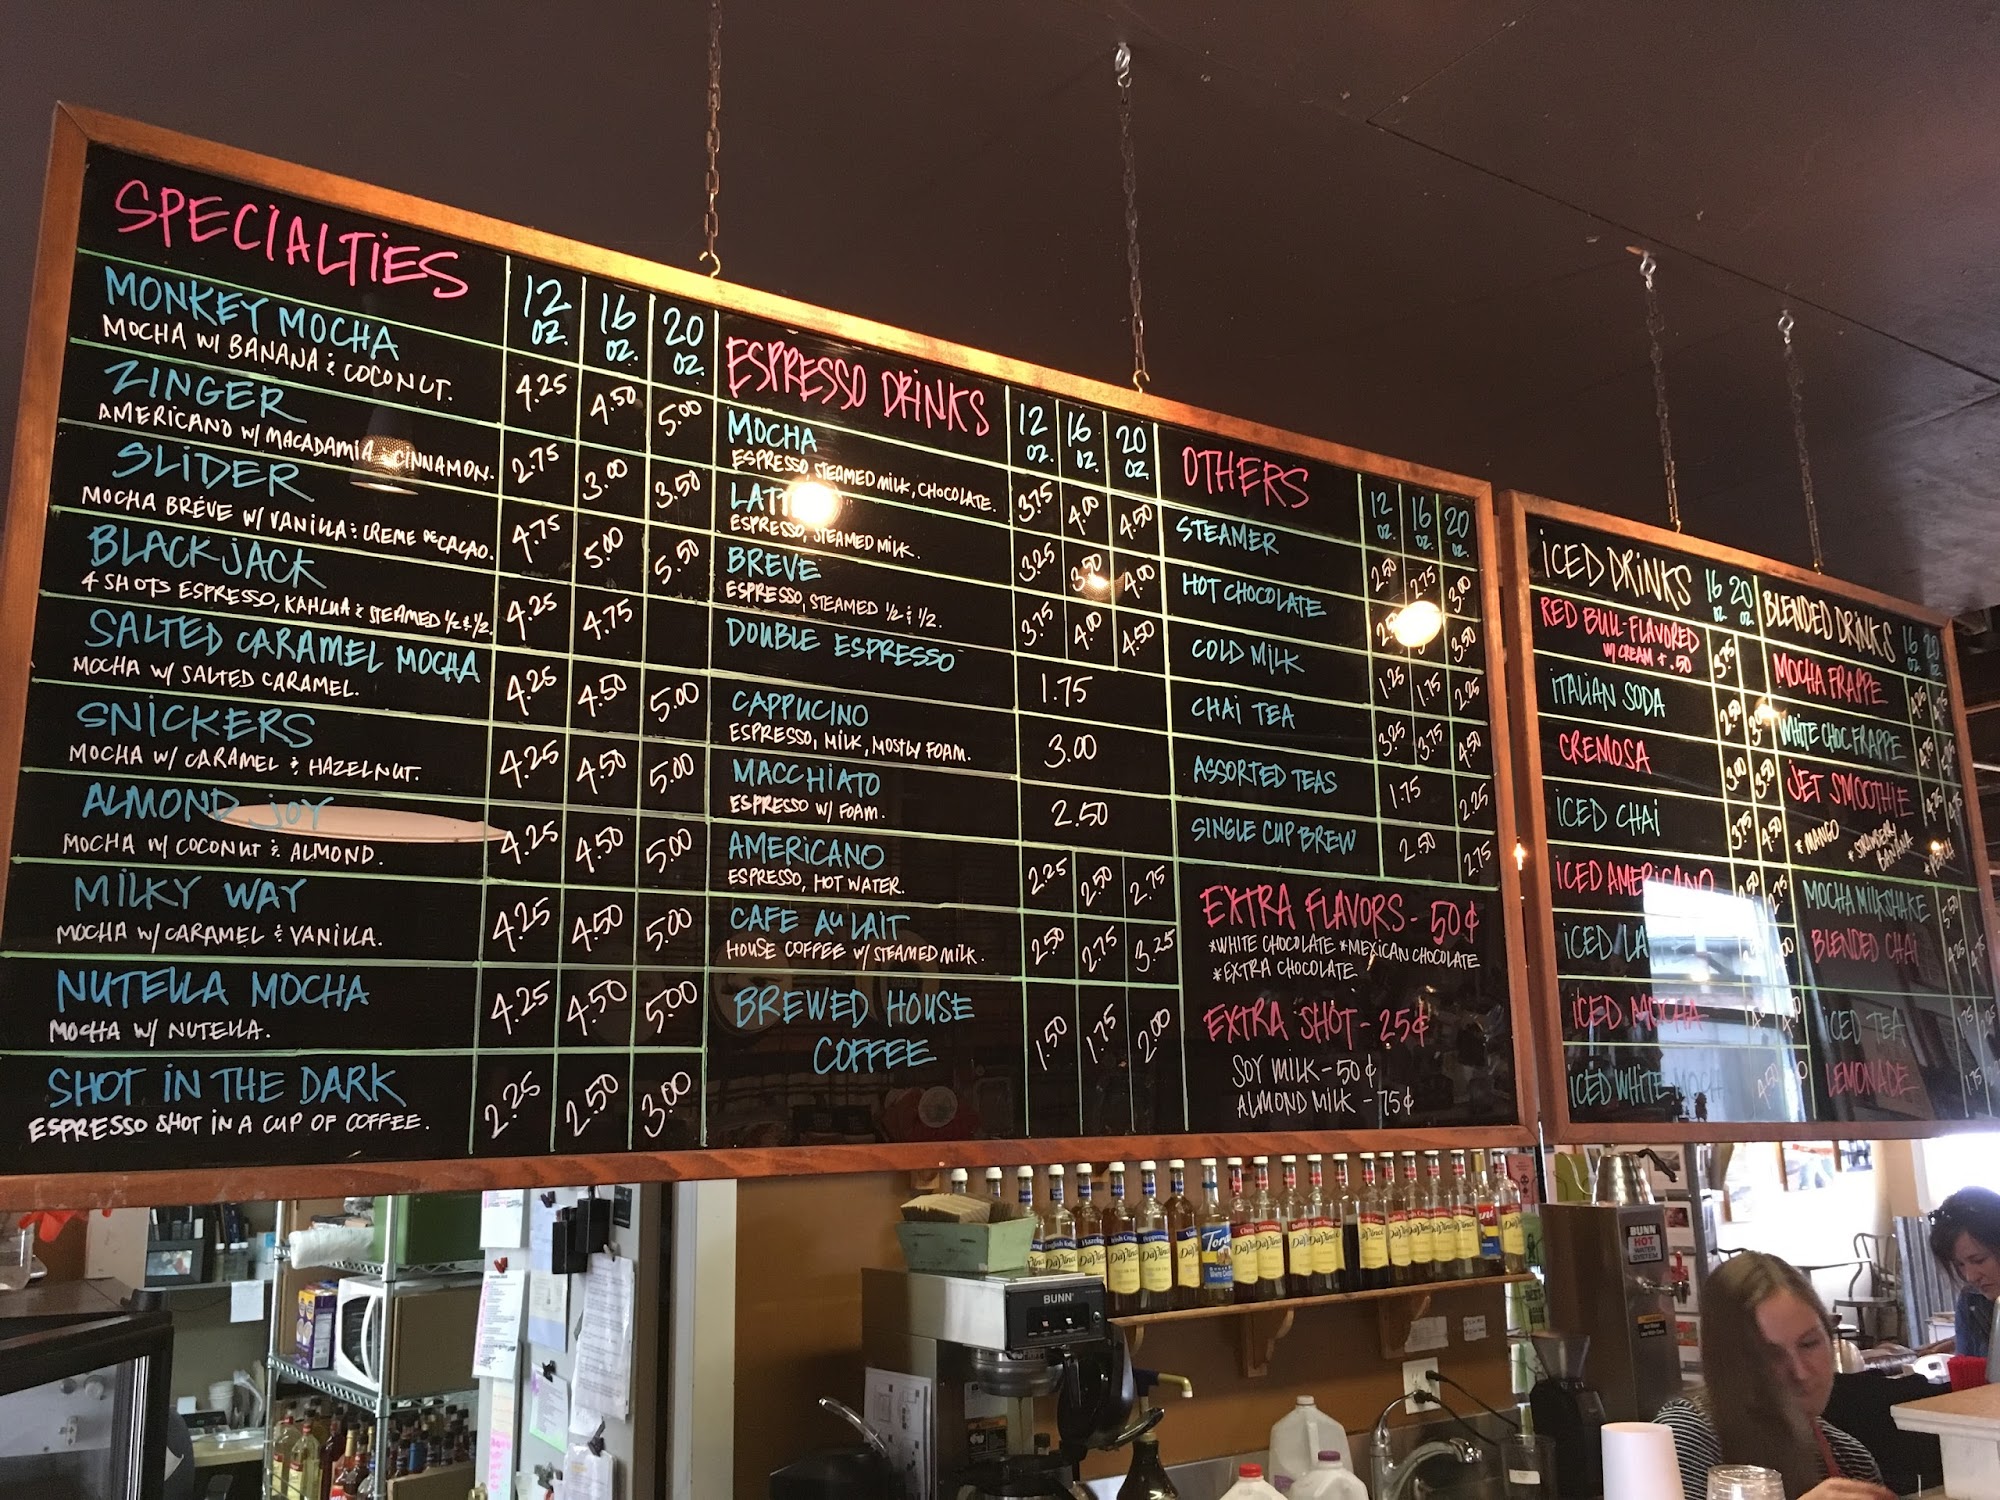 SPECIALTIES
12 OZ. 16 OZ. 20 OZ.
MONKEY MOCHA
MOCHA W/ BANANA & COCONUT.
4.25 4.50 5.00
ZINGER
AMERICANO W/ MACADAMIA & CINNAMON.
2.75 3.00 3.50
SLIDER
MOCHA BRÉVE W/ VANILLA & CREME DE CACAO.
4.75 5.00 5.50
BLACKJACK
4 SHOTS ESPRESSO, KAHLUA & STEAMED 1/2 & 1/2.
4.25 4.75
SALTED CARAMEL MOCHA
MOCHA W/ SALTED CARAMEL.
4.25 4.50 5.00
SNICKERS
MOCHA W/ CARAMEL & HAZELNUT.
4.25 4.50 5.00
ALMOND JOY
MOCHA W/ COCONUT & ALMOND.
4.25 4.50 5.00
MILKY WAY
MOCHA W/ CARAMEL & VANILLA.
4.25 4.50 5.00
NUTELLA MOCHA
MOCHA W/ NUTELLA.
4.25 4.50 5.00
SHOT IN THE DARK
ESPRESSO SHOT IN A CUP OF COFFEE.
2.25 2.50 3.00
ESPRESSO DRINKS
12 OZ. 16 OZ. 20 OZ.
MOCHA
ESPRESSO, STEAMED MILK, CHOCOLATE.
3.75 4.00 4.50
LATTE
ESPRESSO, STEAMED MILK.
3.25 3.50 4.00
BREVE
ESPRESSO, STEAMED 1/2 & 1/2.
3.75 4.00 4.50
DOUBLE ESPRESSO
1.75
CAPPUCINO
ESPRESSO, MILK, MOSTLY FOAM.
3.00
MACCHIATO
ESPRESSO W/ FOAM.
2.50
AMERICANO
ESPRESSO, HOT WATER.
2.25 2.50 2.75
CAFE AU LAIT
HOUSE COFFEE W/ STEAMED MILK.
2.50 2.75 3.25
BREWED HOUSE
COFFEE
1.50 1.75 2.00
OTHERS
12 OZ. 16 OZ. 20 OZ.
STEAMER
2.50 2.75 3.00
HOT CHOCOLATE
3.50
COLD MILK
1.25 1.75 2.25
CHAI TEA
3.25 3.75 4.50
ASSORTED TEAS
1.75 2.25
SINGLE CUP BREW
2.50 2.75
EXTRA FLAVORS - 50¢
*WHITE CHOCOLATE *MEXICAN CHOCOLATE
*EXTRA CHOCOLATE.
EXTRA SHOT - 25¢
SOY MILK - 50¢
ALMOND MILK - 75¢
ICED DRINKS
16 OZ 20 OZ
RED BULL-FLAVORED
W/ CREAM + .50
3.75
ITALIAN SODA
2.50
CREMOSA
3.00 3.50
ICED CHAI
3.75 4.50
ICED AMERICANO
2.75
ICED
ICED MOCHA
ICED WHITE MOCHA
BLENDED DRINKS
16 OZ. 20 OZ.
MOCHA FRAPPE
4.25 4.75
WHITE CHOC FRAPPE
4.75 5.25
JET SMOOTHIE
4.25 4.75
* MANGO
* STRAWBERRY BANANA
MOCHA MILKSHAKE
5.50
BLENDED CHAI
4.25 4.75
ICED TEA
1.75 2.25
LEMONADE
1.75
BUNN
DaVinci
Torani
BUNN
HOT
WATER
SYSTEM